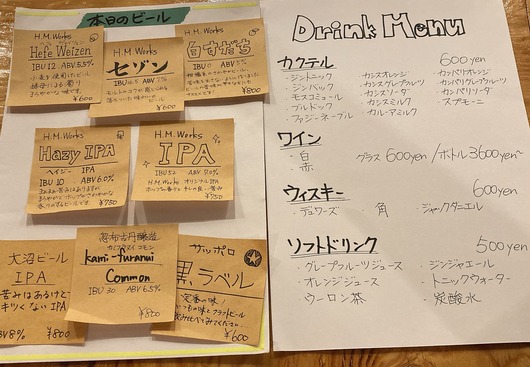 本日のビール
H.M.Works
Hefe Weizen
IBU 12 ABV 5.5%
¥600
H.M.Works
セゾン
H.M.Works
白すだち
¥800
H.M.Works
Hazy IPA
ヘイジー IPA
IBU 10 ABV 6.0%
¥750
H.M.Works
IPA
IBU 52 ABV 7.0%
H.M.Works オリジナルIPA
¥750
大沼ビール
IPA
苦みはあるけど
キツくないIPA
ABV 8%
¥800
忽布古丹醸造
kami-furanui
Common
IBU 30 ABV 6.5%
¥800
サッポロ
黒ラベル
定番の味!
¥600
Drink Menu
カクテル 600yen
・ジントニック ・カシスオレンジ ・カンパリオレンジ
・ジンバック ・カシスグレープフルーツ ・カンパリグレープフルーツ
・モスコミュール ・カシスソーダ ・カンパリソーダ
・ブルドック ・カシスミルク ・スプモーニ
・ファジーネーブル ・カルーアミルク
ワイン
・白
・赤
グラス 600yen / ボトル 3600yen~
ウィスキー 600yen
・デュワーズ ・角 ・ジャックダニエル
ソフトドリンク 500yen
・グレープフルーツジュース ・ジンジャエール
・オレンジジュース ・トニックウォーター
・ウーロン茶 ・炭酸水